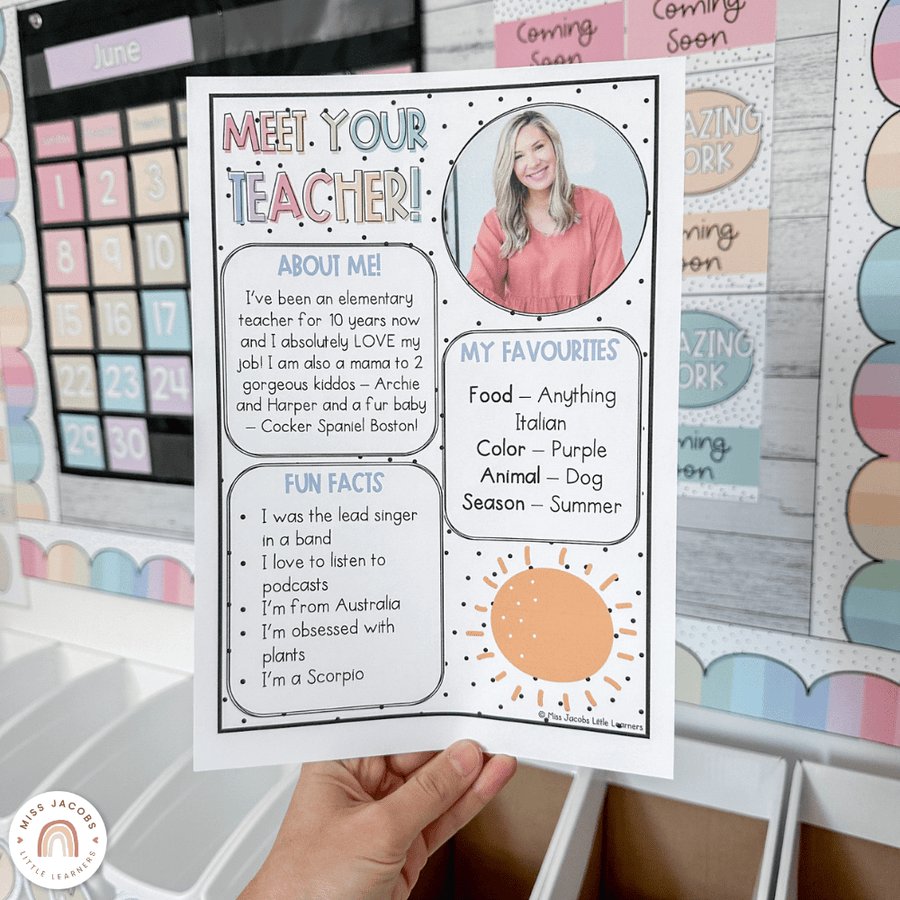 June
Coming
Soon
Coming
Soon
1
2
3
8
9
10
15
16
17
22
23
24
29
30
MEET YOUR
TEACHER!
ABOUT ME!
I've been an elementary
teacher for 10 years now
and I absolutely LOVE my
job! I am also a mama to 2
gorgeous kiddos – Archie
and Harper and a fur baby
– Cocker Spaniel Boston!
MY FAVOURITES
Food – Anything
Italian
Color – Purple
Animal – Dog
Season – Summer
FUN FACTS
• I was the lead singer
in a band
• I love to listen to
podcasts
• I'm from Australia
• I'm obsessed with
plants
• I'm a Scorpio
© Miss Jacobs Little Learners
AZING
ORK
ming
oon
AZING
ORK
ming
oon
MISS JACOBS
LITTLE LEARNERS